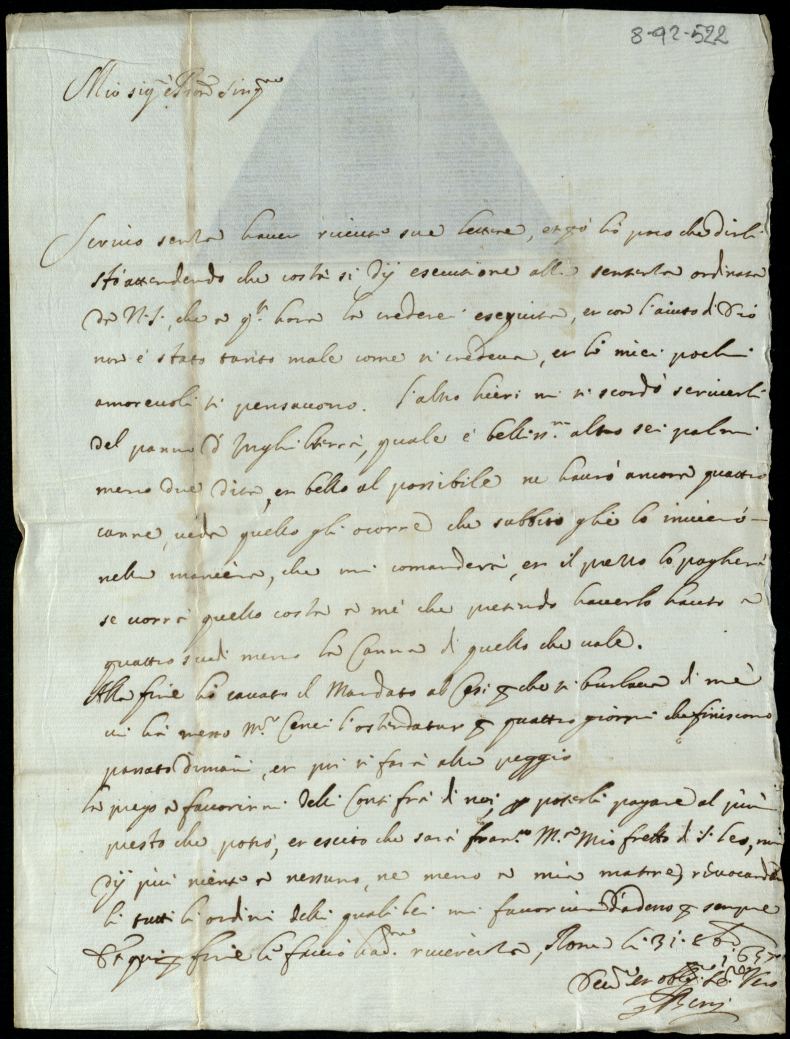 8-92-522
Mio sig.re e Pron Sing.mo
Scrivo senza haver riceute sue lettere, et però hò poco che dirli
stò attendendo che costà si dij esecutione alla sentenza ordinata
da N.S., che a q.ta hora la crederei eseguita, et con l'aiuto di Dio
non è stato tanto male come si credeva, et li miei pochi
amorevoli si pensavono. l'altro hieri mi si scordò scriverli
del panno d'Inghilterra, quale è belliss.mo alto sei palmi
meno due dita, et bello al possibile ne haurò ancora quattro
canne, veda quello gli ocorre che subbito gliè lo invierò
nella maniera, che mi comanderà, et il prezzo lo pagherà
se vorrà quello costa a mè che pretendo haverlo hauto a
quattro scudi meno la Canna di quello che vale.
Alla fine hò cavato il Mandato al Cesi p che si burlava di mè
vi hà messo M.r Cenci l'ostendatur p quattro giorni che finiscono
passato dimani, et poi si farà alla peggio
la prego a favorirmi delli Conti frà di noi, p poterli pagare al più
presto che potrò, et escito che sarà fran.co M.a Mio frello di S. Leo, non
dij più niente a nessuno, ne meno a mia matre, rivocandoli
li tutti li ordini delli quali lei mi favoriva p sempre
Et qui p fine li faccio riverenza, Roma li 31
1637